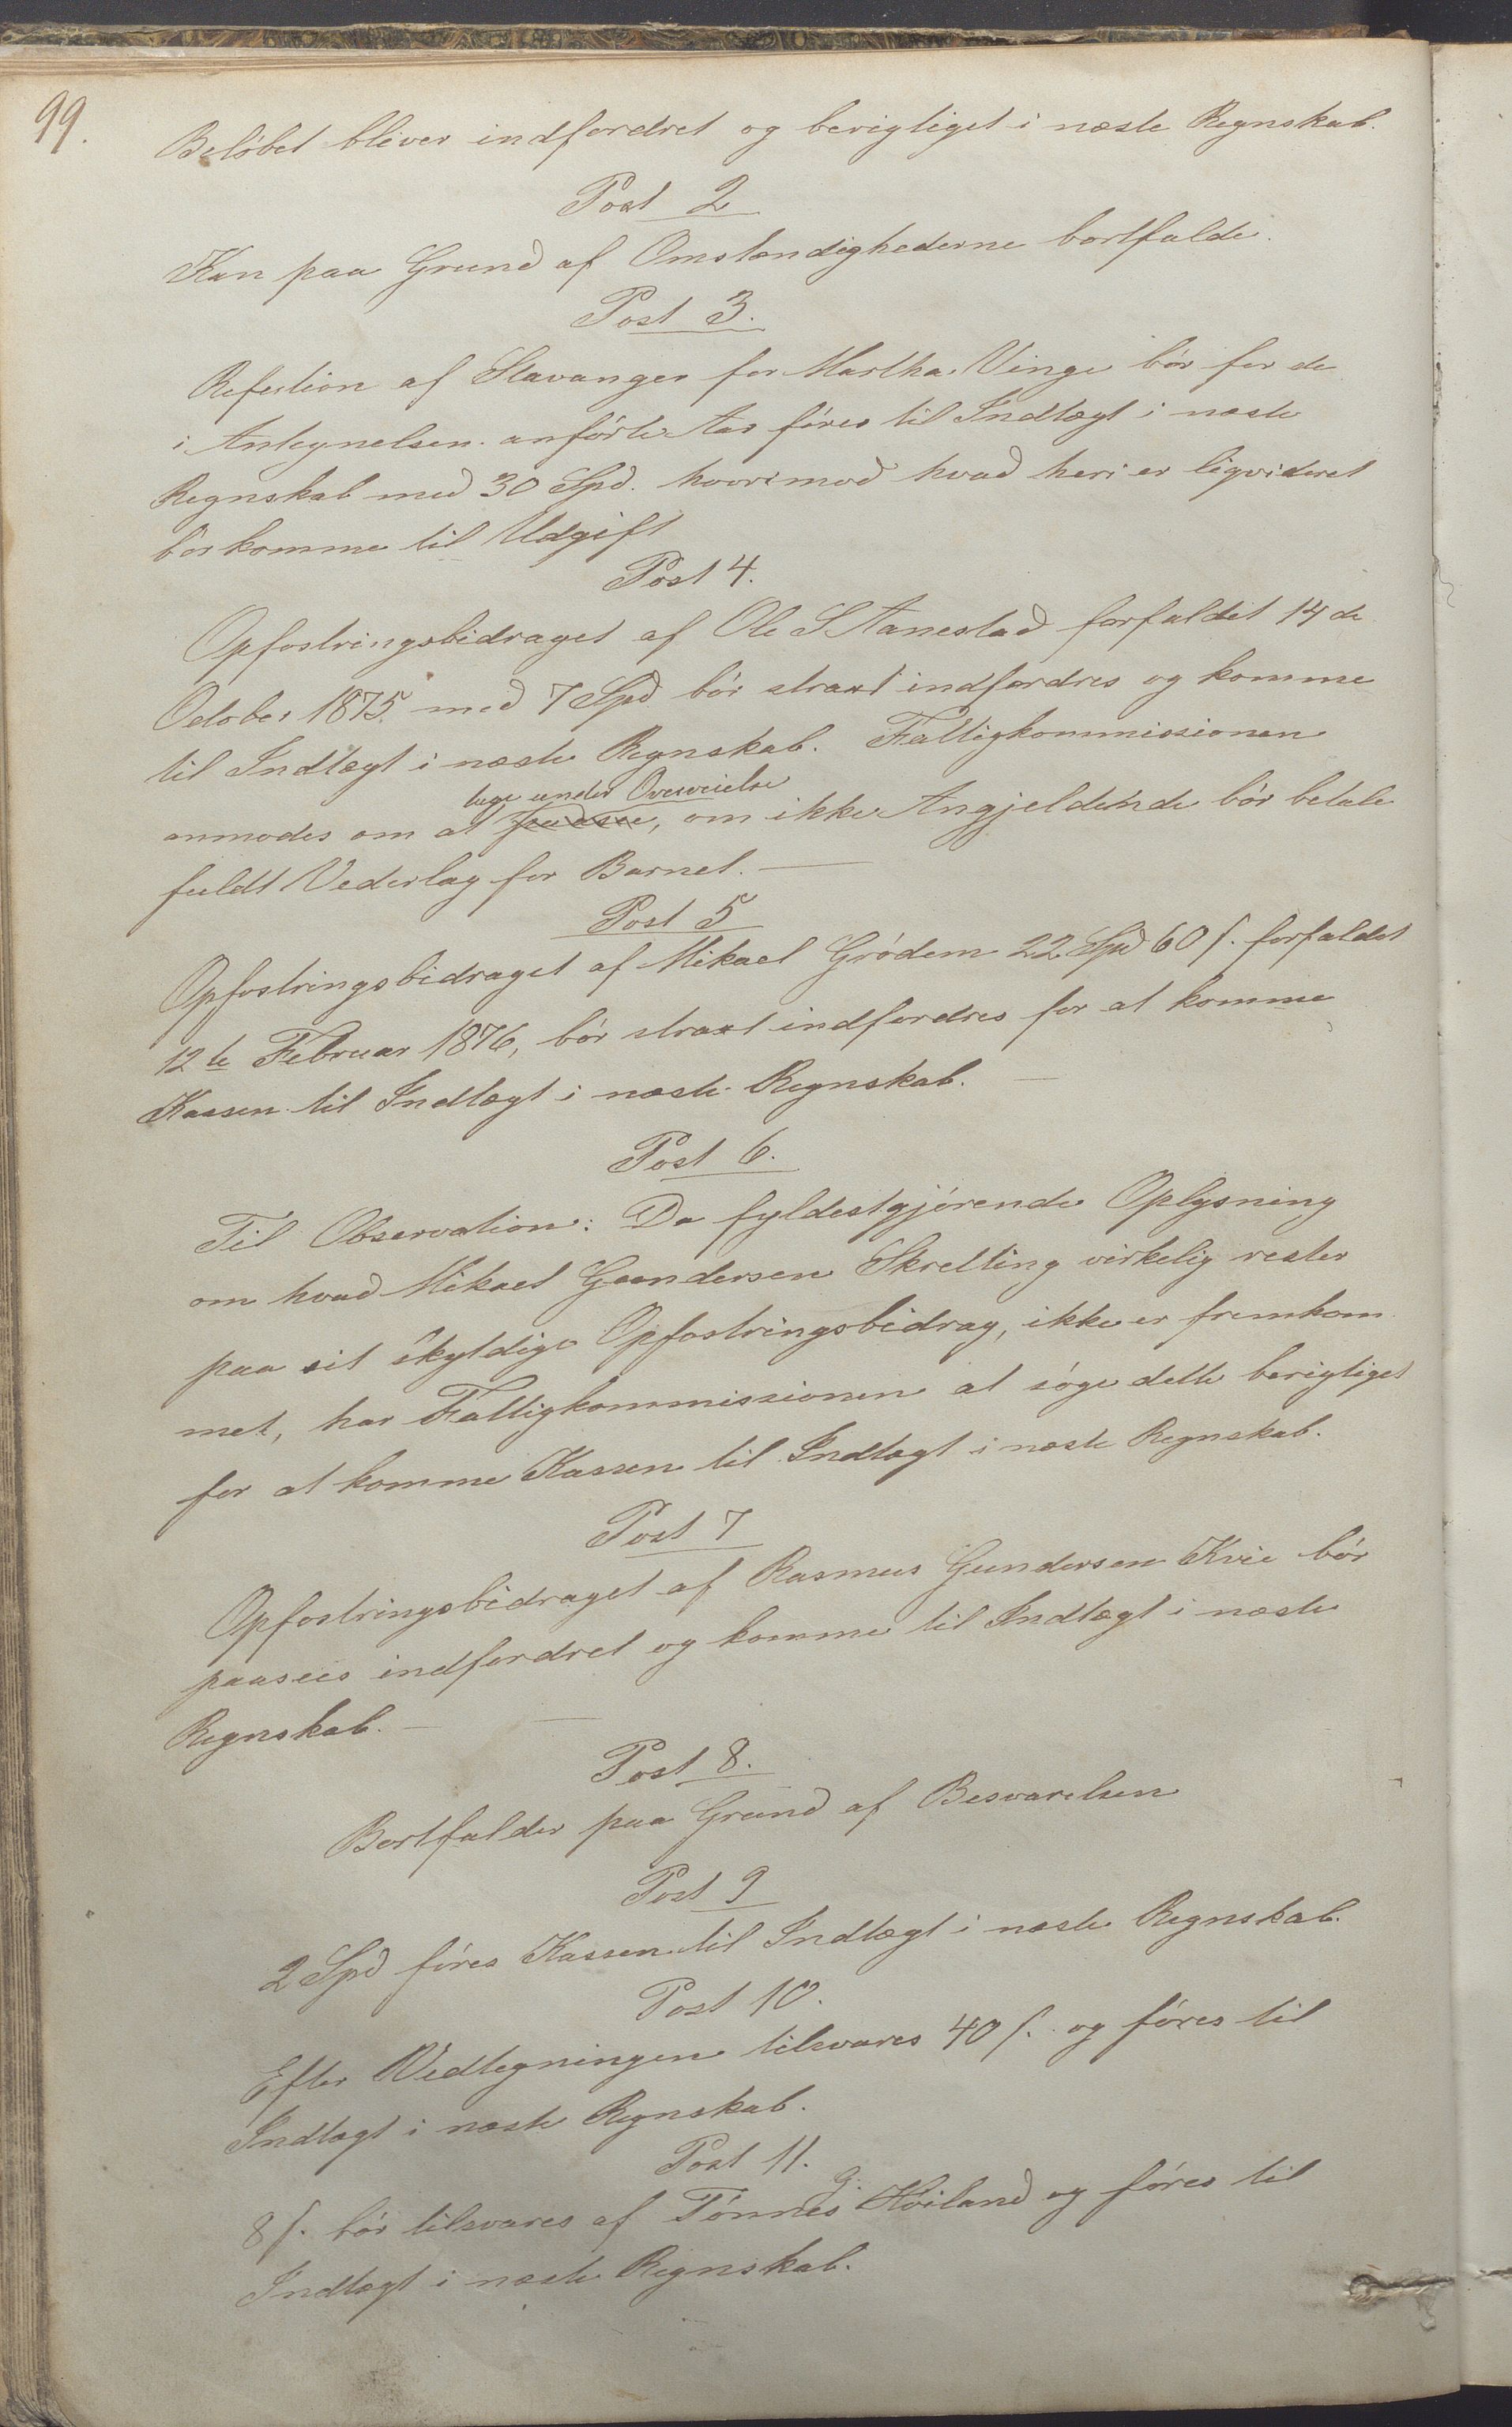 99.
Belöbet bliver indfordret og berigtiget i næste Regnskab.
Post 2
Kan paa Grund af Omstændighederne bortfalde.
Post 3.
Refusion af Stavanger for Martha Vinge bör for de
i Antegnelsen anförte Aar föres til Indtægt i næste
Regnskab med 30 Spd. hvorimod hvad heri er liqvideret
bör komme til Udgift
Post 4.
Opfostringsbidraget af Ole S Aanestad forfaldet 14de
October 1875 med 7 Spd bör straxt indfordres og komme
til Indtægt i næste Regnskab. Fattigkommissionen
tage under Overveielse
anmodes om at , om ikke Angjeldende bör betale
fuldt Vederlag for Barnet.
Post 5
Opfostringsbidraget af Mikael Grödem 22 Spd 60 s. forfaldet
12te Februar 1876, bör straxt indfordres for at komme
Kassen til Indtægt i næste Regnskab.
Post 6.
Til Observation: Da fyldestgjörende Oplysning
om hvad Mikael Gundersen Skretting virkelig rester
paa sit skyldige Opfostringsbidrag, ikke er fremkom
met, har Fattigkommissionen at söge dette berigtiget
for at komme Kassen til Indtægt i næste Regnskab.
Post 7
Opfostringsbidraget af Rasmus Gundersen Kvie bör
paasees indfordret og komme til Indtægt i næste
Regnskab.
Post 8.
Bortfalder paa Grund af Besvarelsen
Post 9
2 Spd föres Kassen til Indtægt i næste Regnskab.
Post 10.
Efter Vedtegningen tilsvares 40 s. og föres til
Indtægt i næste Regnskab.
Post 11.
8 s. bör tilsvares af Tönnes G. Höiland og föres til
Indtægt i næste Regnskab.